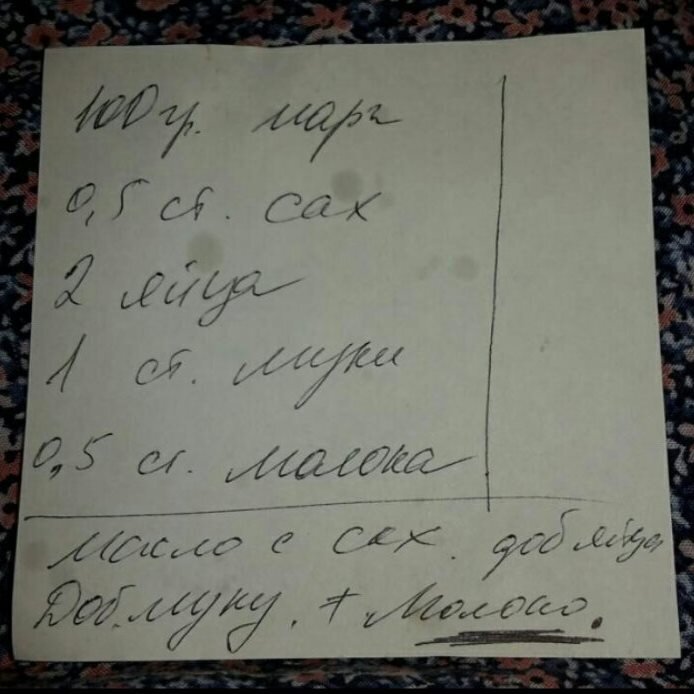 100 гр. марг
0,5 ст. сах
2 яйца
1 ст. муки
0,5 ст. молока
Масло с сах. доб яйца
Доб. муку. + Молоко.